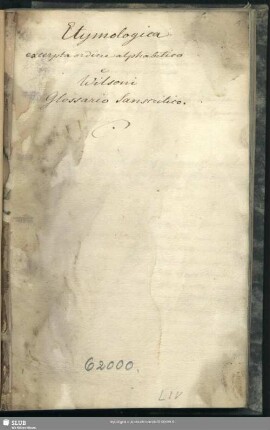 Etymologica
excerpta ordine alphabetico
e
Wilsoni
Glossario Sanscritico.
62000.
LIV
SLUB